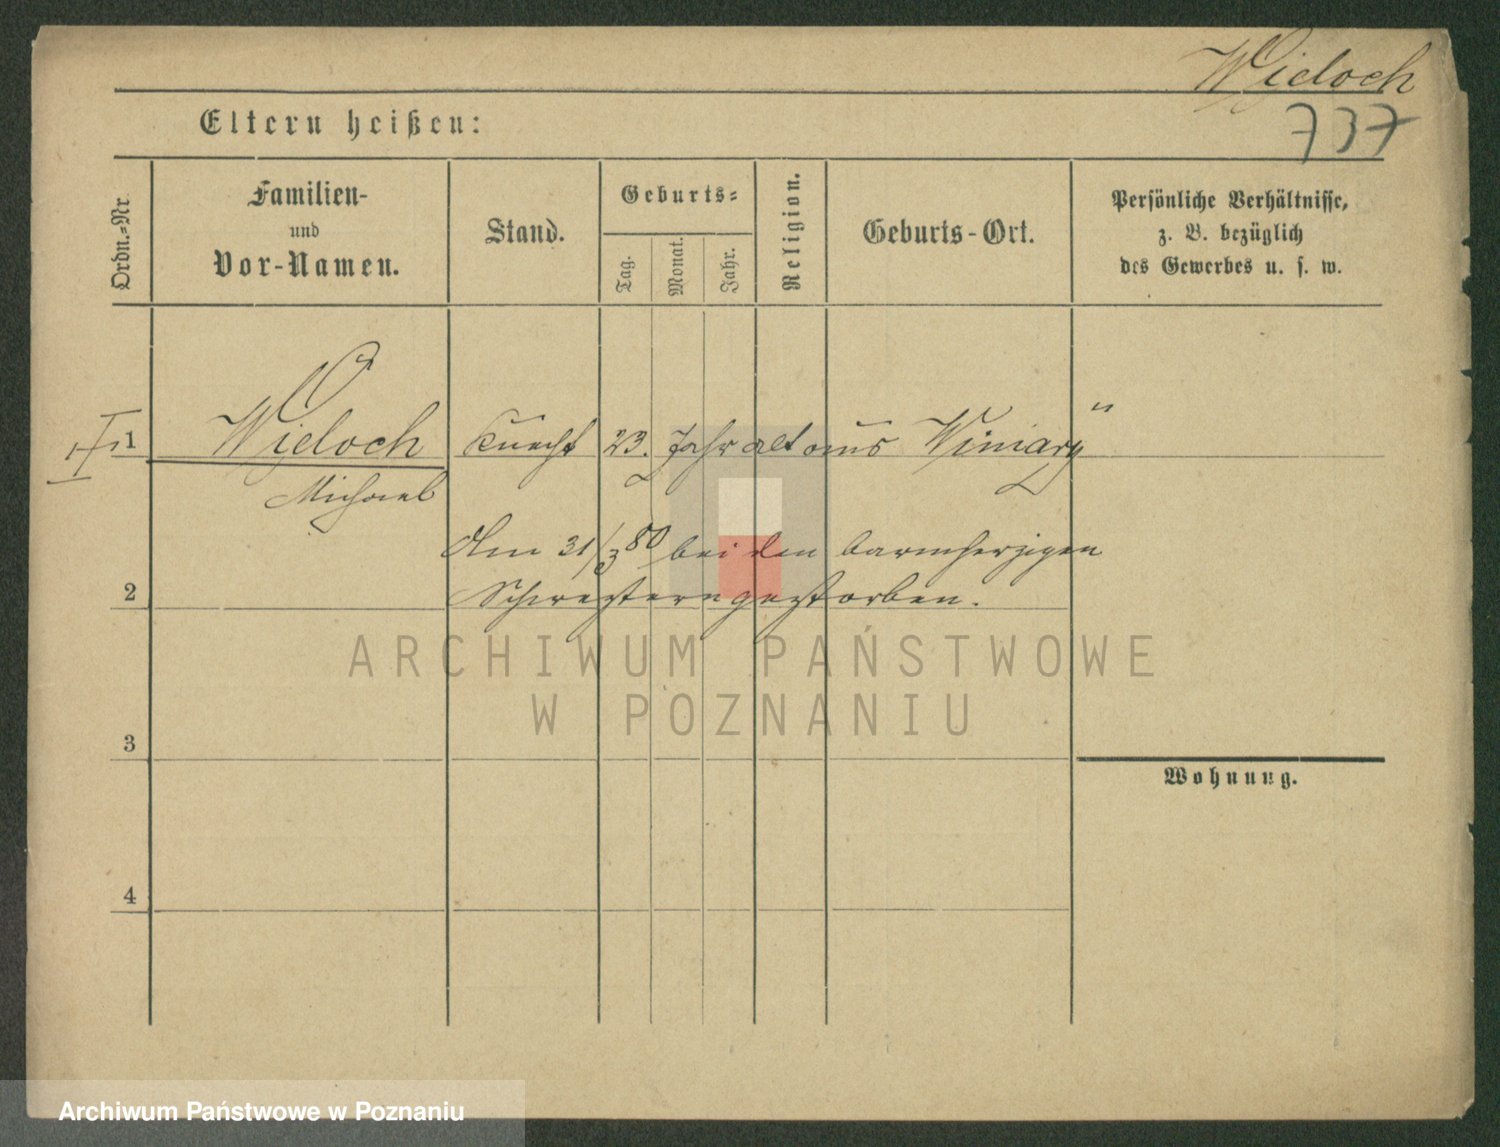 Wieloch
737
Eltern heißen:
Ordn.-Nr
Familien-
und
Vor-Namen.
Stand.
Geburts-
Tag.
Monat.
Jahr.
Religion.
Geburts-Ort.
Persönliche Verhältnisse,
z. B. bezüglich
des Gewerbes u. s. w.
1 Wieloch Knecht 23. Jahr alt aus Winiary
Michael
Am 31/3 80 bei den barmherzigen
2 Schwestern gestorben.
ARCHIWUM PAŃSTWOWE
W POZNANIU
3
Wohnung.
4
Archiwum Państwowe w Poznaniu